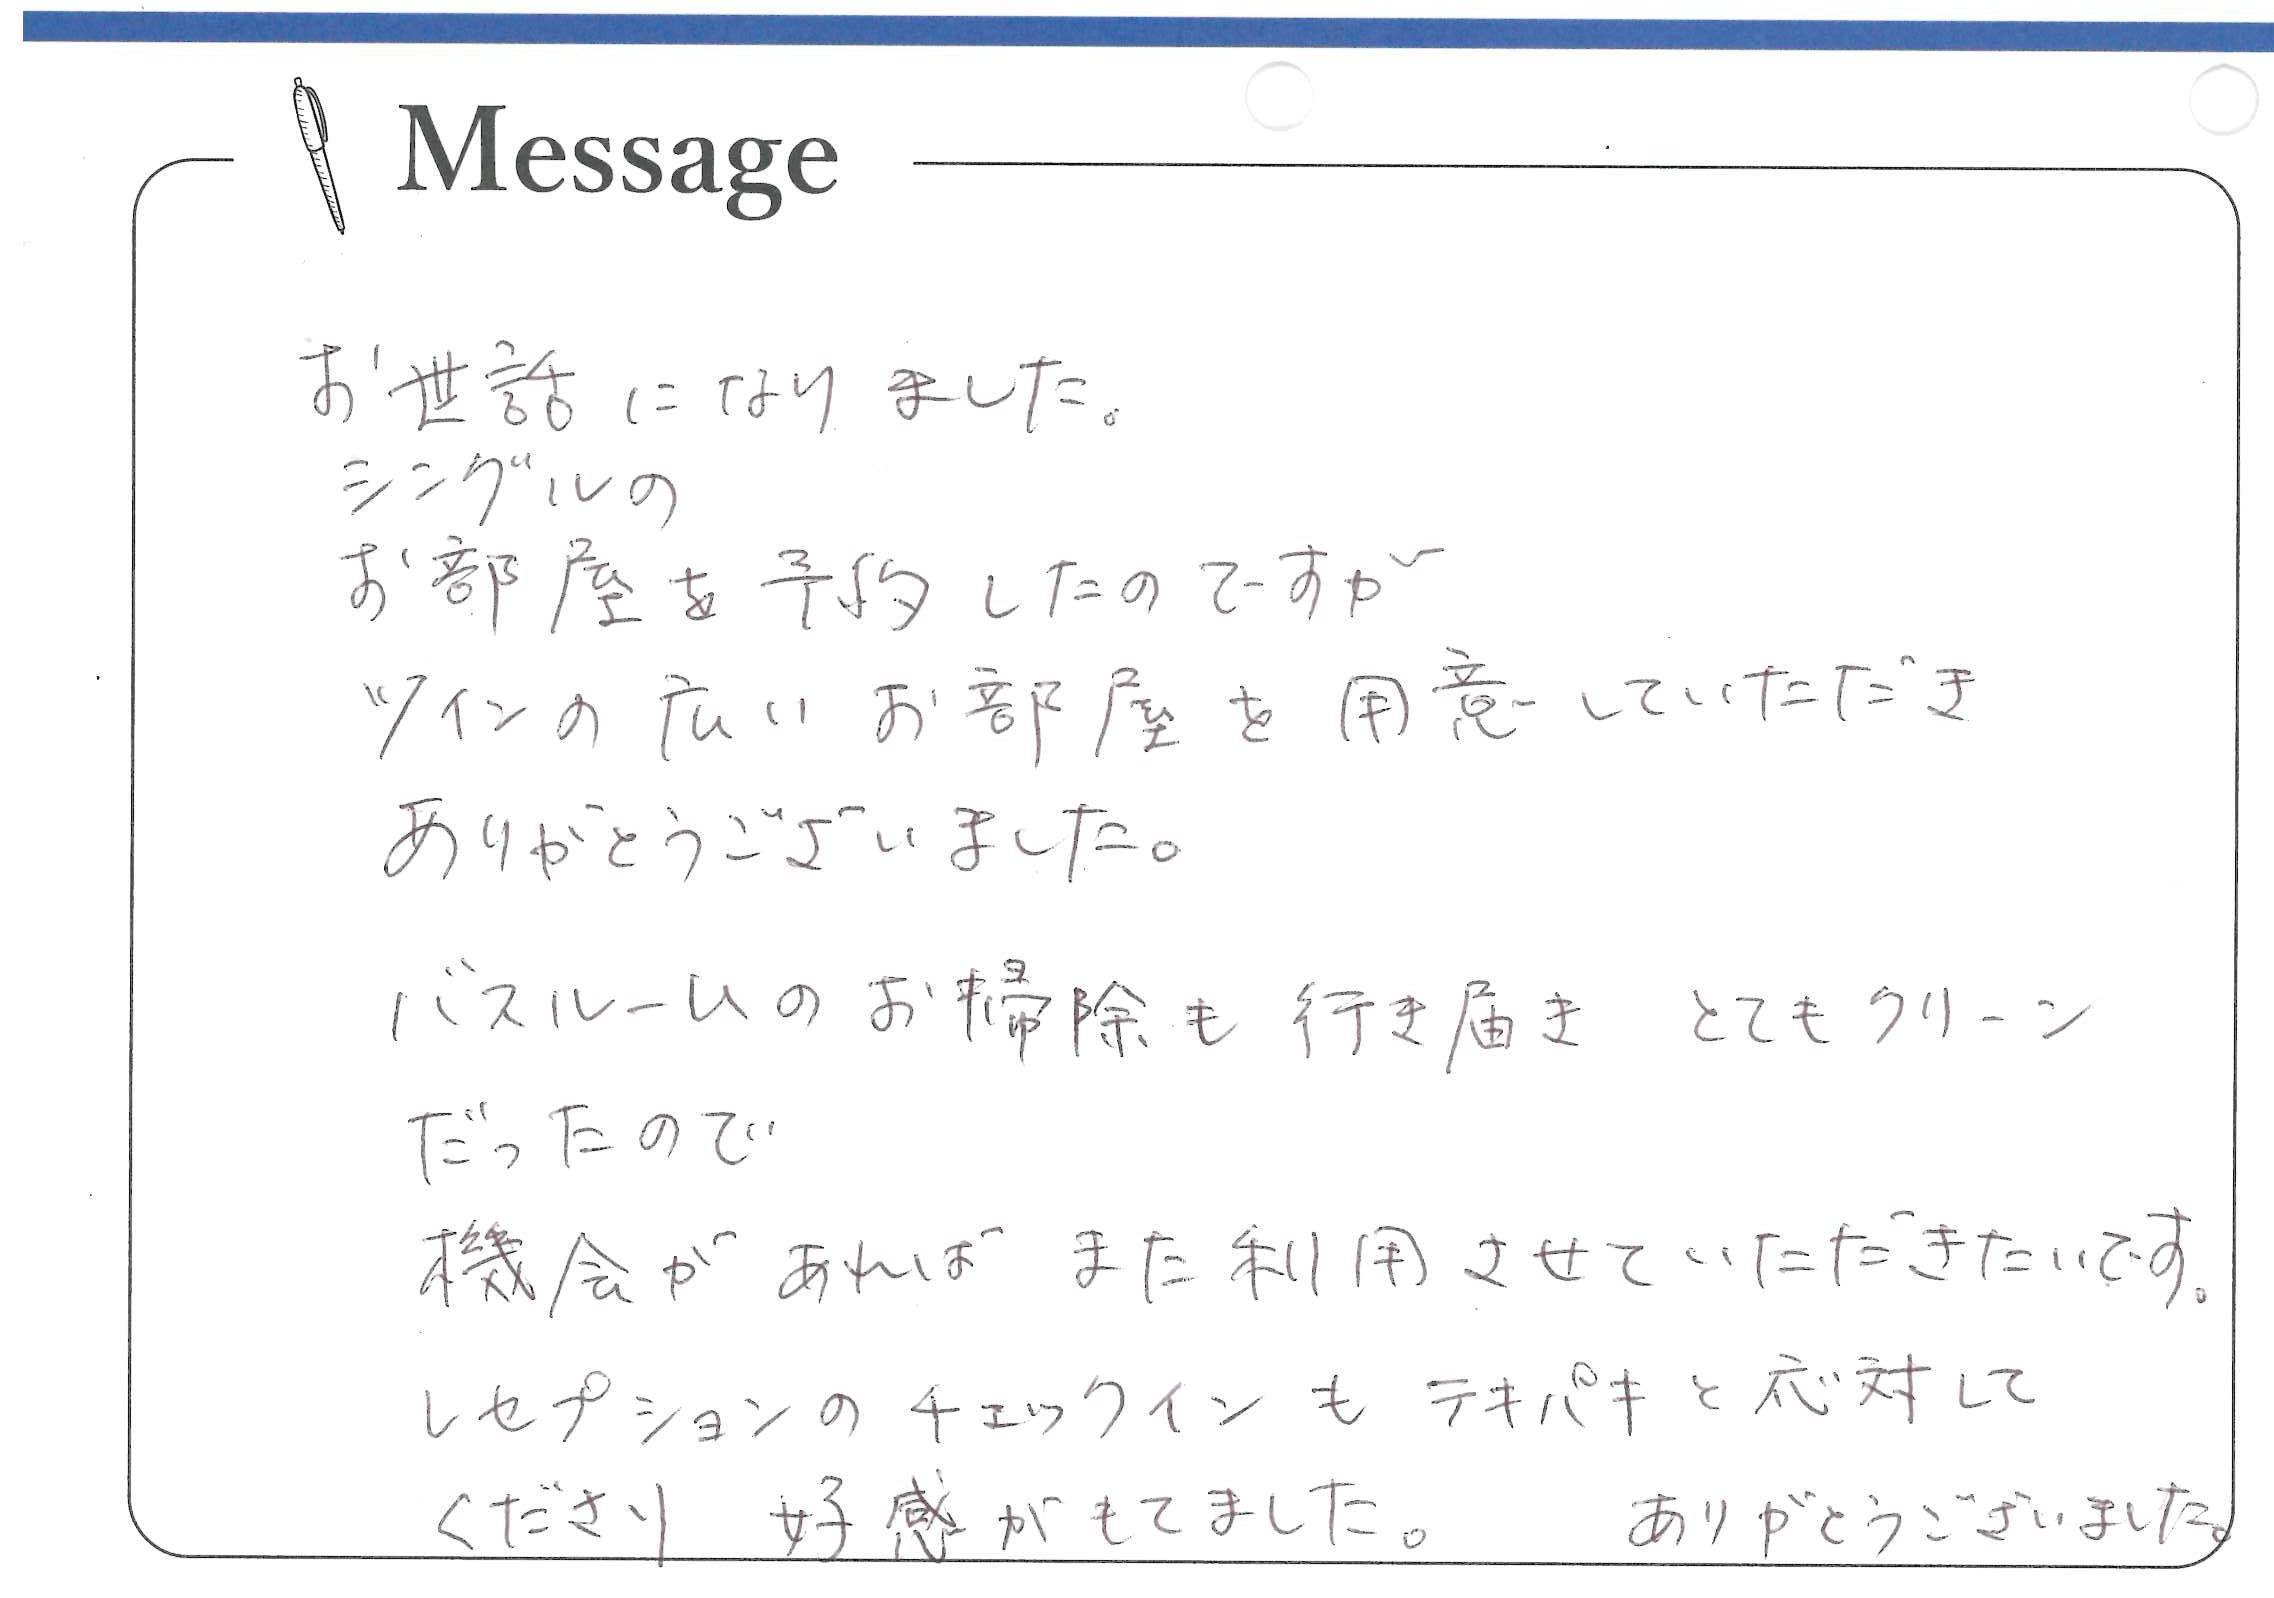 Message
お世話になりました。
シングルの
お部屋を予約したのですが
ツインの広いお部屋を用意していただき
ありがとうございました。
バスルームのお掃除も行き届き とてもクリーン
だったので
機会があればまた利用させていただきたいです。
レセプションのチェックインもテキパキと応対して
くださり 好感がもてました。 ありがとうございました。